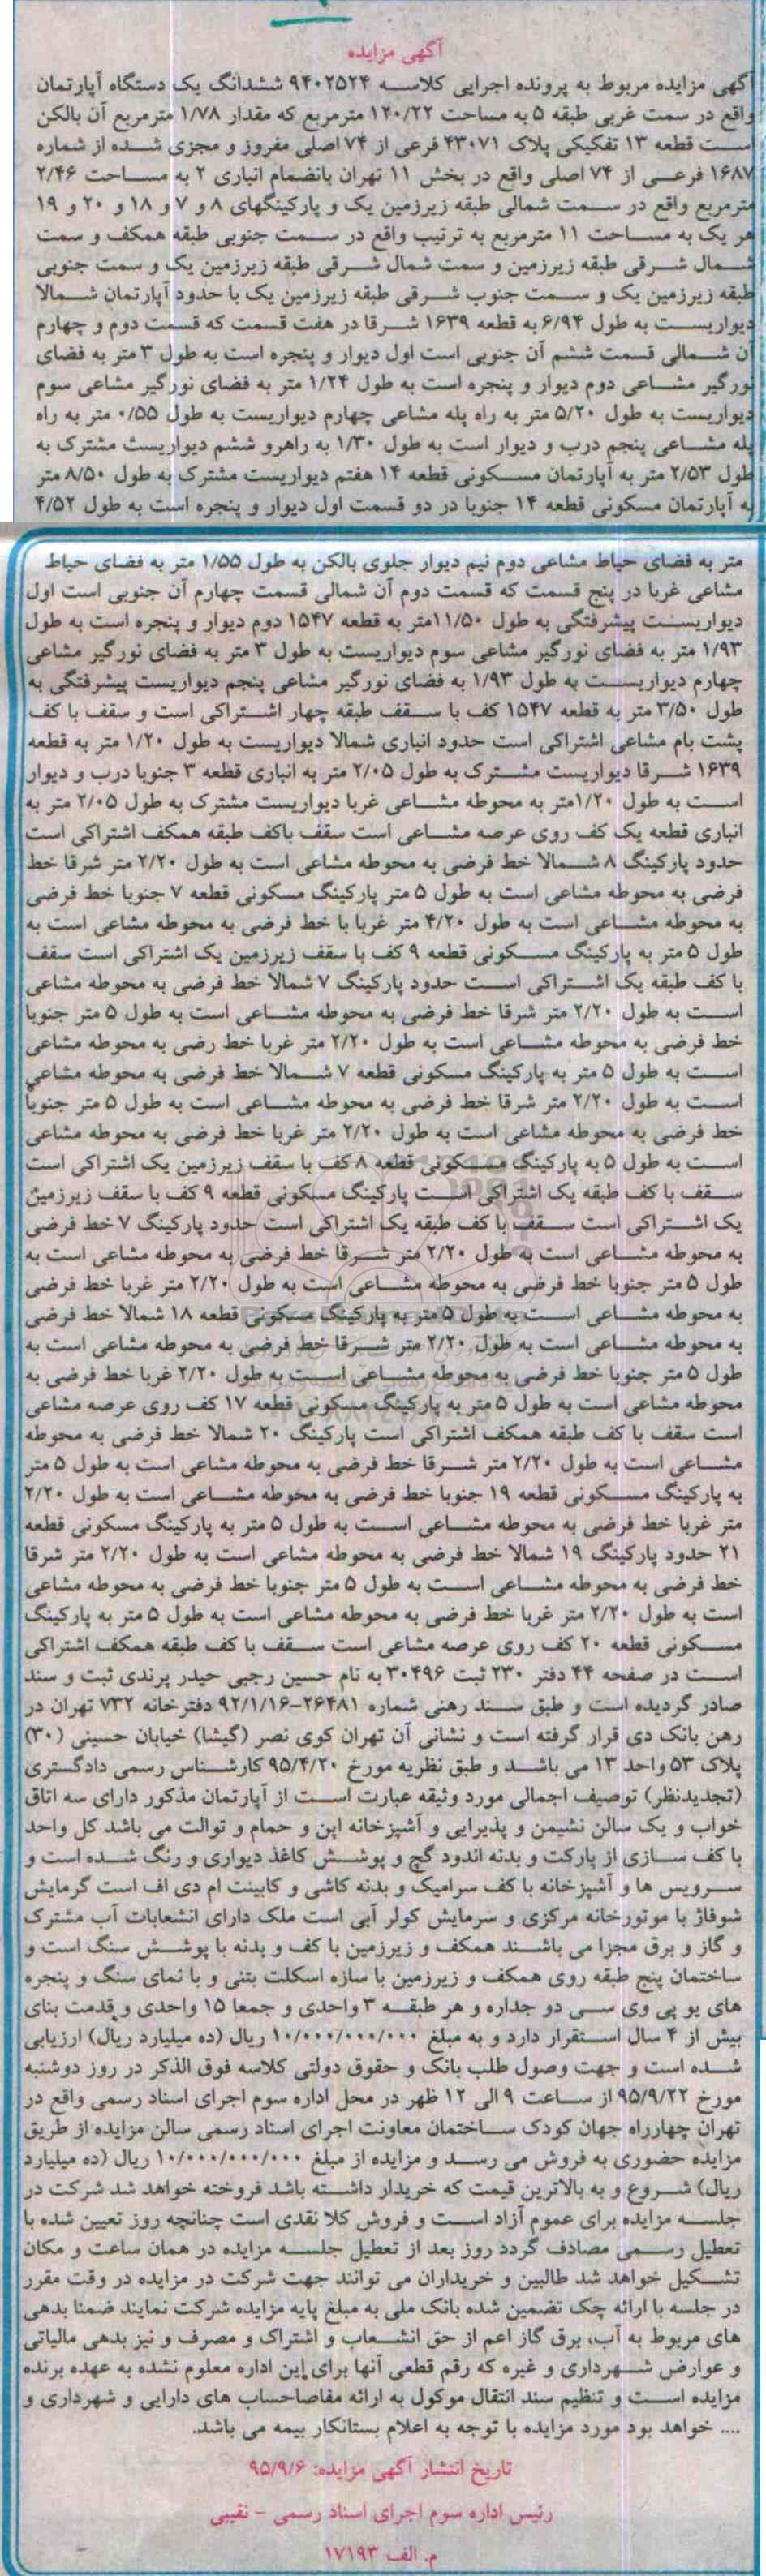 آگهی مزایده
آگهی مزایده مربوط به پرونده اجرایی کلاسه ۹۴۰۲۵۲۴ ششدانگ یک دستگاه آپارتمان
واقع در سمت غربی طبقه ۵ به مساحت ۱۲۰/۲۲ مترمربع که مقدار ۱/۷۸ مترمربع آن بالکن
است قطعه ۱۳ تفکیکی پلاک ۴۳۰۷۱ فرعی از ۷۴ اصلی مفروز و مجزی شده از شماره
۱۶۸۷ فرعی از ۷۴ اصلی واقع در بخش ۱۱ تهران بانضمام انباری ۲ به مساحت ۲/۴۶
مترمربع واقع در سمت شمالی طبقه زیرزمین یک و پارکینگهای ۸ و ۷ و ۱۸ و ۲۰ و ۱۹
هر یک به مساحت ۱۱ مترمربع به ترتیب واقع در سمت جنوبی طبقه همکف و سمت
شمال شرقی طبقه زیرزمین و سمت شمال شرقی طبقه زیرزمین یک و سمت جنوبی
طبقه زیرزمین یک و سمت جنوب شرقی طبقه زیرزمین یک با حدود آپارتمان شمالا
دیواریست به طول ۶/۹۴ به قطعه ۱۶۳۹ شرقا در هفت قسمت که قسمت دوم و چهارم
آن شمالی قسمت ششم آن جنوبی است اول دیوار و پنجره است به طول ۳ متر به فضای
نورگیر مشاعی دوم دیوار و پنجره است به طول ۱/۲۴ متر به فضای نورگیر مشاعی سوم
دیواریست به طول ۵/۲۰ متر به راه پله مشاعی چهارم دیواریست به طول ۰/۵۵ متر به راه
پله مشاعی پنجم درب و دیوار است به طول ۱/۳۰ به راهرو ششم دیواریست مشترک به
طول ۲/۵۳ متر به آپارتمان مسکونی قطعه ۱۴ هفتم دیواریست مشترک به طول ۸/۵۰ متر
به آپارتمان مسکونی قطعه ۱۴ جنوبا در دو قسمت اول دیوار و پنجره است به طول ۴/۵۲
متر به فضای حیاط مشاعی دوم نیم دیوار جلوی بالکن به طول ۱/۵۵ متر به فضای حیاط
مشاعی غربا در پنج قسمت که قسمت دوم آن شمالی قسمت چهارم آن جنوبی است اول
دیواریست پیشرفتگی به طول ۱۱/۵۰متر به قطعه ۱۵۴۷ دوم دیوار و پنجره است به طول
۱/۹۳ متر به فضای نورگیر مشاعی سوم دیواریست به طول ۳ متر به فضای نورگیر مشاعی
چهارم دیواریست به طول ۱/۹۳ به فضای نورگیر مشاعی پنجم دیواریست پیشرفتگی به
طول ۳/۵۰ متر به قطعه ۱۵۴۷ کف با سقف طبقه چهار اشتراکی است و سقف با کف
پشت بام مشاعی اشتراکی است حدود انباری شمالا دیواریست به طول ۱/۲۰ متر به قطعه
۱۶۳۹ شرقا دیواریست مشترک به طول ۲/۰۵ متر به انباری قطعه ۳ جنوبا درب و دیوار
است به طول ۱/۲۰متر به محوطه مشاعی غربا دیواریست مشترک به طول ۲/۰۵ متر به
انباری قطعه یک کف روی عرصه مشاعی است سقف باکف طبقه همکف اشتراکی است
حدود پارکینگ ۸ شمالا خط فرضی به محوطه مشاعی است به طول ۲/۲۰ متر شرقا خط
فرضی به محوطه مشاعی است به طول ۵ متر پارکینگ مسکونی قطعه ۷ جنوبا خط فرضی
به محوطه مشاعی است به طول ۴/۲۰ متر غربا با خط فرضی به محوطه مشاعی است به
طول ۵ متر به پارکینگ مسکونی قطعه ۹ کف با سقف زیرزمین یک اشتراکی است سقف
با کف طبقه یک اشتراکی است حدود پارکینگ ۷ شمالا خط فرضی به محوطه مشاعی
است به طول ۲/۲۰ متر شرقا خط فرضی به محوطه مشاعی است به طول ۵ متر جنوبا
خط فرضی به محوطه مشاعی است به طول ۲/۲۰ متر غربا خط رضی به محوطه مشاعی
است به طول ۵ متر به پارکینگ مسکونی قطعه ۷ شمالا خط فرضی به محوطه مشاعی
است به طول ۲/۲۰ متر شرقا خط فرضی به محوطه مشاعی است به طول ۵ متر جنوبا
خط فرضی به محوطه مشاعی است به طول ۲/۲۰ متر غربا خط فرضی به محوطه مشاعی
است به طول ۵ به پارکینگ مسکونی قطعه ۸ کف با سقف زیرزمین یک اشتراکی است
سقف با کف طبقه یک اشتراکی است پارکینگ مسکونی قطعه ۹ کف با سقف زیرزمین
یک اشتراکی است سقف با کف طبقه یک اشتراکی است حدود پارکینگ ۷ خط فرضی
به محوطه مشاعی است به طول ۲/۲۰ متر شرقا خط فرضی به محوطه مشاعی است به
طول ۵ متر جنوبا خط فرضی به محوطه مشاعی است به طول ۲/۲۰ متر غربا خط فرضی
به محوطه مشاعی است به طول ۵ متر به پارکینگ مسکونی قطعه ۱۸ شمالا خط فرضی
به محوطه مشاعی است به طول ۲/۲۰ متر شرقا خط فرضی به محوطه مشاعی است به
طول ۵ متر جنوبا خط فرضی به محوطه مشاعی است به طول ۲/۲۰ غربا خط فرضی به
محوطه مشاعی است به طول ۵ متر به پارکینگ مسکونی قطعه ۱۷ کف روی عرصه مشاعی
است سقف با کف طبقه همکف اشتراکی است پارکینگ ۲۰ شمالا خط فرضی به محوطه
مشاعی است به طول ۲/۲۰ متر شرقا خط فرضی به محوطه مشاعی است به طول ۵ متر
به پارکینگ مسکونی قطعه ۱۹ جنوبا خط فرضی به محوطه مشاعی است به طول ۲/۲۰
متر غربا خط فرضی به محوطه مشاعی است به طول ۵ متر به پارکینگ مسکونی قطعه
۲۱ حدود پارکینگ ۱۹ شمالا خط فرضی به محوطه مشاعی است به طول ۲/۲۰ متر شرقا
خط فرضی به محوطه مشاعی است به طول ۵ متر جنوبا خط فرضی به محوطه مشاعی
است به طول ۲/۲۰ متر غربا خط فرضی به محوطه مشاعی است به طول ۵ متر به پارکینگ
مسکونی قطعه ۲۰ کف روی عرصه مشاعی است سقف با کف طبقه همکف اشتراکی
است در صفحه ۴۴ دفتر ۲۳۰ ثبت ۳۰۴۹۶ به نام حسین رجبی حیدر پرندی ثبت و سند
صادر گردیده است و طبق سند رهنی شماره ۲۶۴۸۱-۹۲/۱/۱۶ دفترخانه ۷۳۲ تهران در
رهن بانک دی قرار گرفته است و نشانی آن تهران کوی نصر (گیشا) خیابان حسینی (۳۰)
پلاک ۵۳ واحد ۱۳ می باشد و طبق نظریه مورخ ۹۵/۴/۲۰ کارشناس رسمی دادگستری
(تجدیدنظر) توصیف اجمالی مورد وثیقه عبارت است از آپارتمان مذکور دارای سه اتاق
خواب و یک سالن نشیمن و پذیرایی و آشپزخانه اپن و حمام و توالت می باشد کل واحد
با کف سازی از پارکت و بدنه اندود گچ و پوشش کاغذ دیواری و رنگ شده است و
سرویس ها و آشپزخانه با کف سرامیک و بدنه کاشی و کابینت ام دی اف است گرمایش
شوفاژ با موتورخانه مرکزی و سرمایش کولر آبی است ملک دارای انشعابات آب مشترک
و گاز و برق مجزا می باشند همکف و زیرزمین با کف و بدنه با پوشش سنگ است و
ساختمان پنج طبقه روی همکف و زیرزمین با سازه اسکلت بتنی و با نمای سنگ و پنجره
های یو پی وی سی دو جداره و هر طبقه ۳ واحدی و جمعا ۱۵ واحدی و قدمت بنای
بیش از ۴ سال استقرار دارد و به مبلغ ۱۰/۰۰۰/۰۰۰/۰۰۰ ریال (ده میلیارد ریال) ارزیابی
شده است و جهت وصول طلب بانک و حقوق دولتی کلاسه فوق الذکر در روز دوشنبه
مورخ ۹۵/۹/۲۲ از ساعت ۹ الی ۱۲ ظهر در محل اداره سوم اجرای اسناد رسمی واقع در
تهران چهارراه جهان کودک ساختمان معاونت اجرای اسناد رسمی سالن مزایده از طریق
مزایده حضوری به فروش می رسد و مزایده از مبلغ ۱۰/۰۰۰/۰۰۰/۰۰۰ ریال (ده میلیارد
ریال) شروع و به بالاترین قیمت که خریدار داشته باشد فروخته خواهد شد شرکت در
جلسه مزایده برای عموم آزاد است و فروش کلا نقدی است چنانچه روز تعیین شده با
تعطیل رسمی مصادف گردد روز بعد از تعطیل جلسه مزایده در همان ساعت و مکان
تشکیل خواهد شد طالبین و خریداران می توانند جهت شرکت در مزایده در وقت مقرر
در جلسه با ارائه چک تضمین شده بانک ملی به مبلغ پایه مزایده شرکت نمایند ضمنا بدهی
های مربوط به آب، برق گاز اعم از حق انشعاب و اشتراک و مصرف و نیز بدهی مالیاتی
و عوارض شهرداری و غیره که رقم قطعی آنها برای این اداره معلوم نشده به عهده برنده
مزایده است و تنظیم سند انتقال موکول به ارائه مفاصاحساب های دارایی و شهرداری و
.... خواهد بود مورد مزایده با توجه به اعلام بستانکار بیمه می باشد.
تاریخ انتشار آگهی مزایده: ۹۵/۹/۶
رئیس اداره سوم اجرای اسناد رسمی - نقیبی
م. الف ۱۷۱۹۳